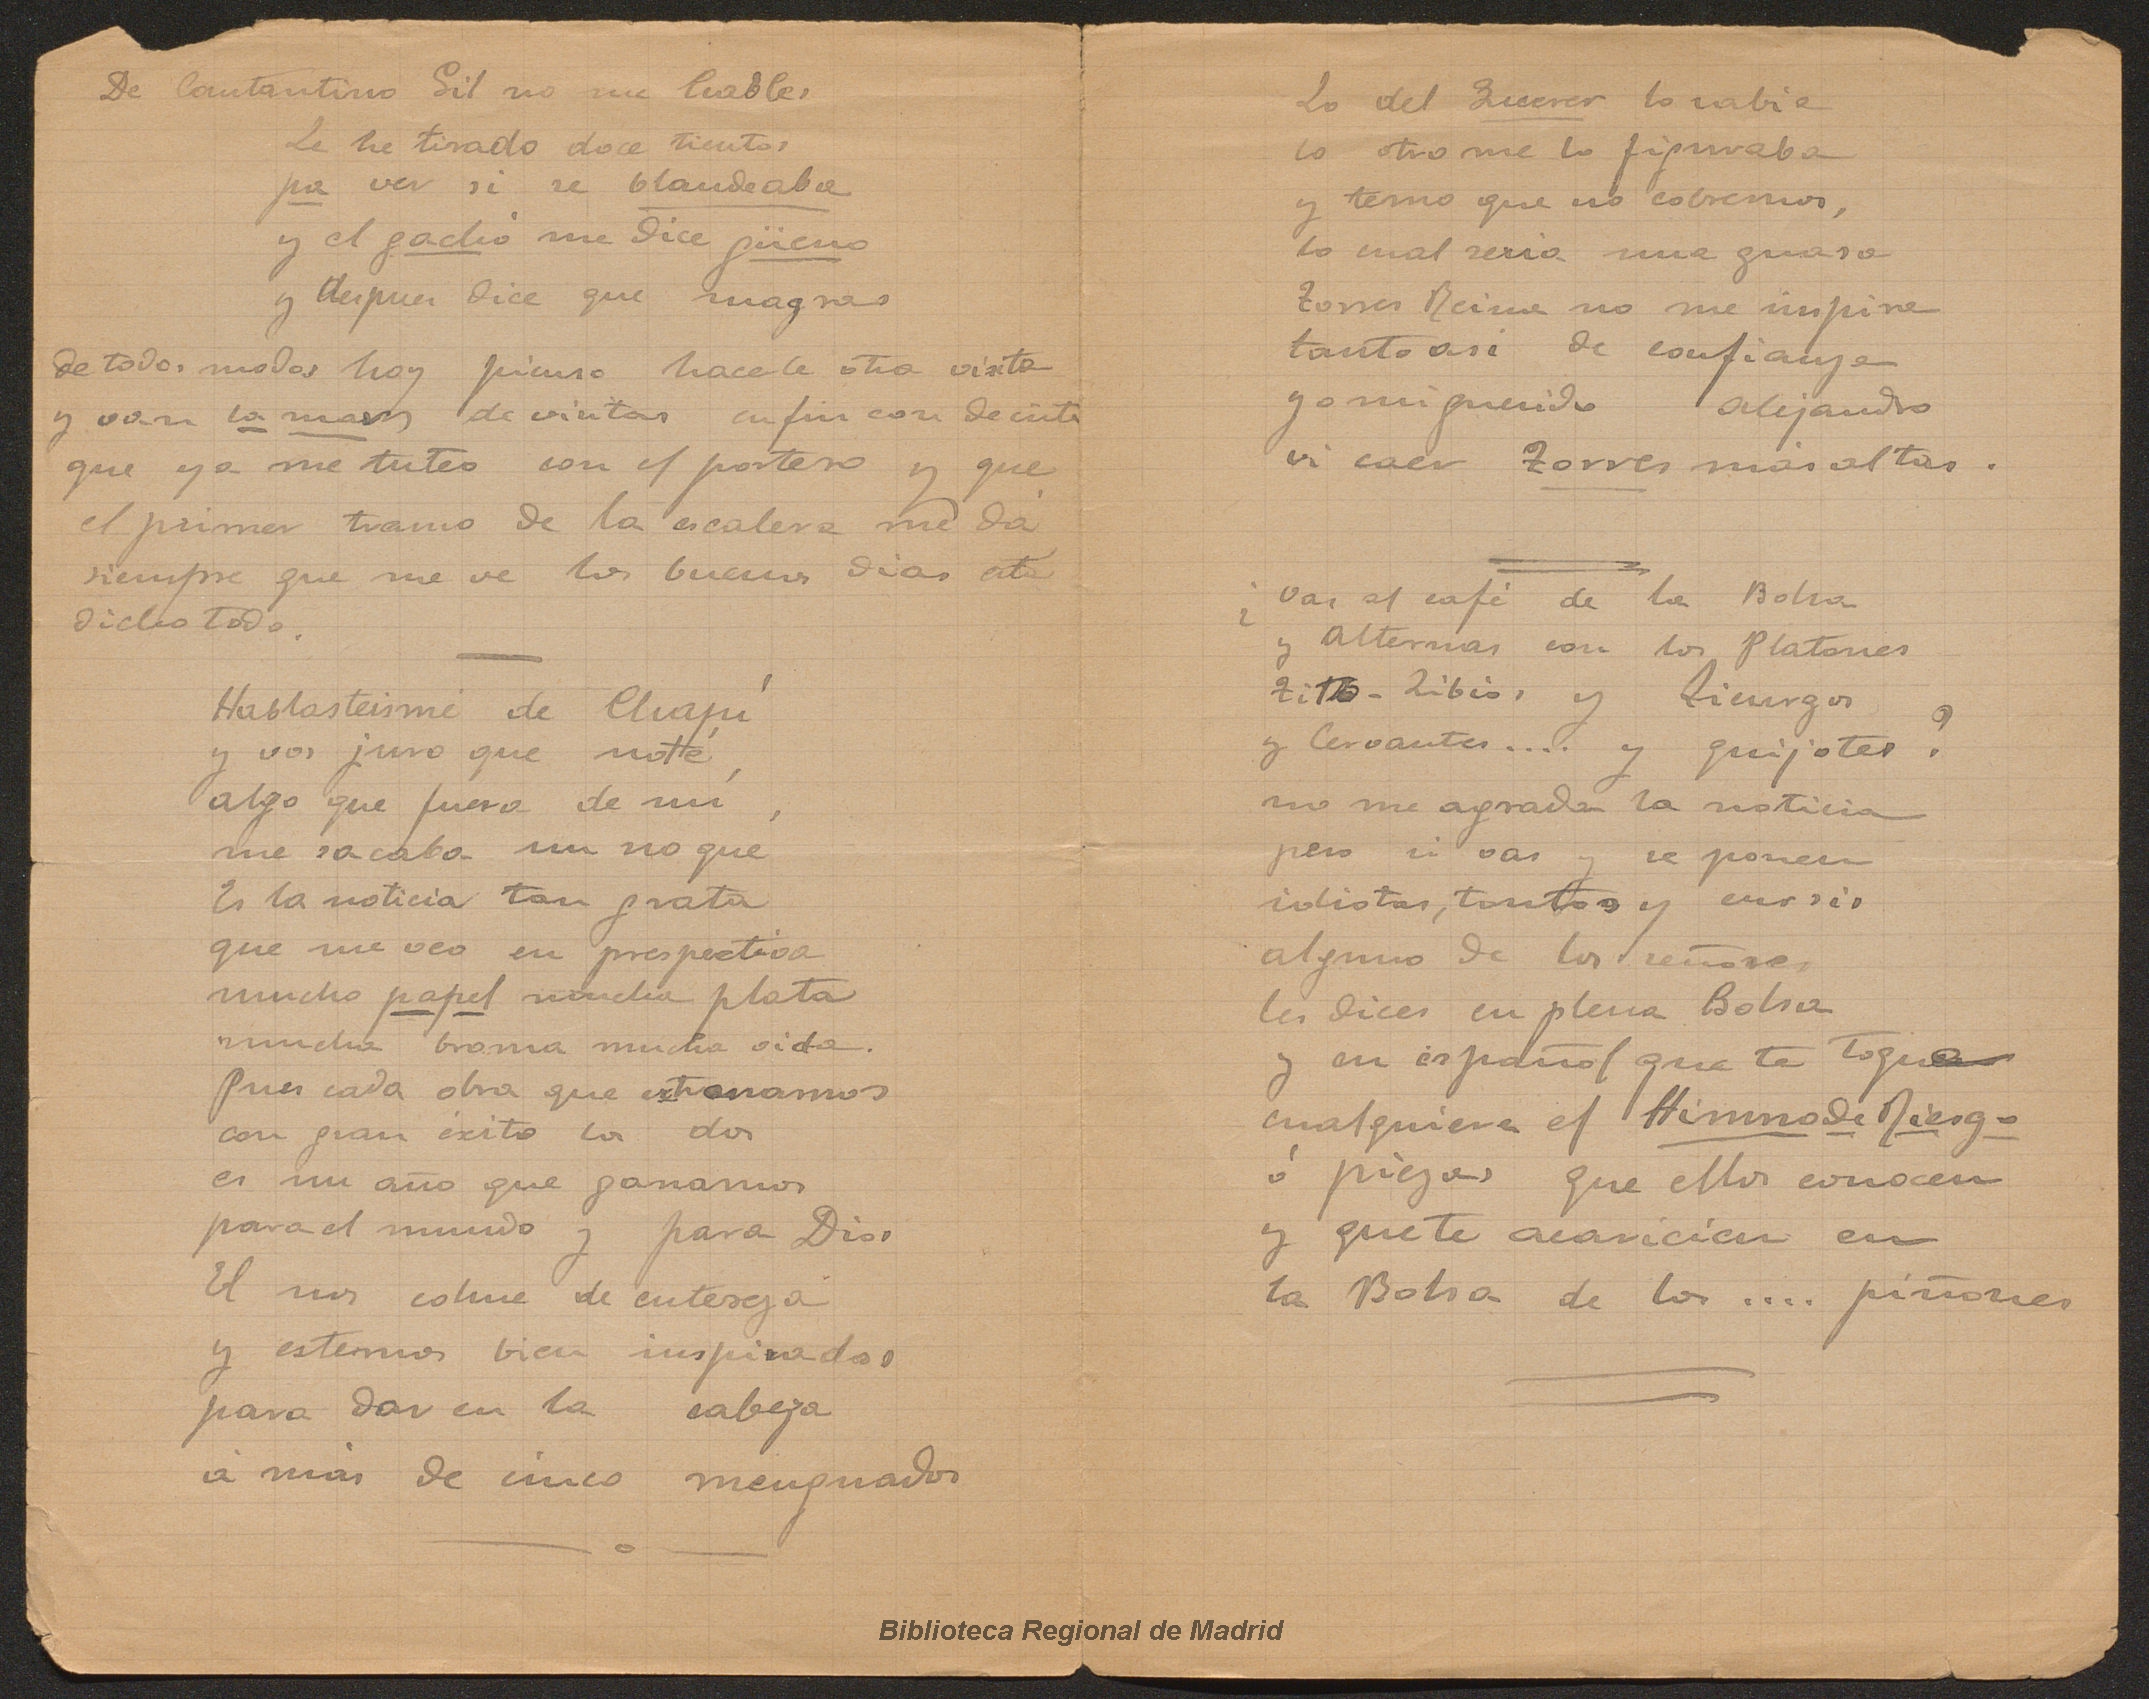 De Cantantino Gil no me hables
Le he tirado doce tientos
pa ver si se blandeaba
y el gachó me dice güeno
y despues dice que magras
de todos modos hoy pienso hacele otra visita
y van la mar de visitas en fin con decirte
que ya me tuteo con el portero y que
el primer tramo de la escalera me dá
siempre que me ve los buenos dias esta
dicho todo.
Hablasteismé de Chapí
y vos juro que noté,
algo que fuera de mí,
me sacaba un no qué
Es la noticia tan grata
que me veo en prespectiva
mucho papel mucha plata
mucha broma mucha vida.
Pues cada obra que estrenamos
con gran éxito los dos
es un año que ganamos
para el mundo y para Dios
El nos colme de entereza
y estemos bien inspirados
para dar en la cabeza
á más de cinco menguados
Lo del lo sabia
lo otro me lo figuraba
y temo que no cobremos,
lo cual seria una guasa
Torres Reina no me inspira
tanto asi de confianza
yo mi querido Alejandro
vi caer Torres más altas.
¿ Vas al café de la Bolsa
y Alternas con los Platones
Tito-Libios y Licurgos
y Cervantes .... y quijotes ?
no me agrada la noticia
pero si vas y se ponen
idiotas, tontos y cursis
alguno de los señores
les dices en plena Bolsa
y en español que te toquen
cualquiera el Himno de Riego
ó piezas que ellos conocen
y que te acaricien en
la Bolsa de los .... piñones
Biblioteca Regional de Madrid